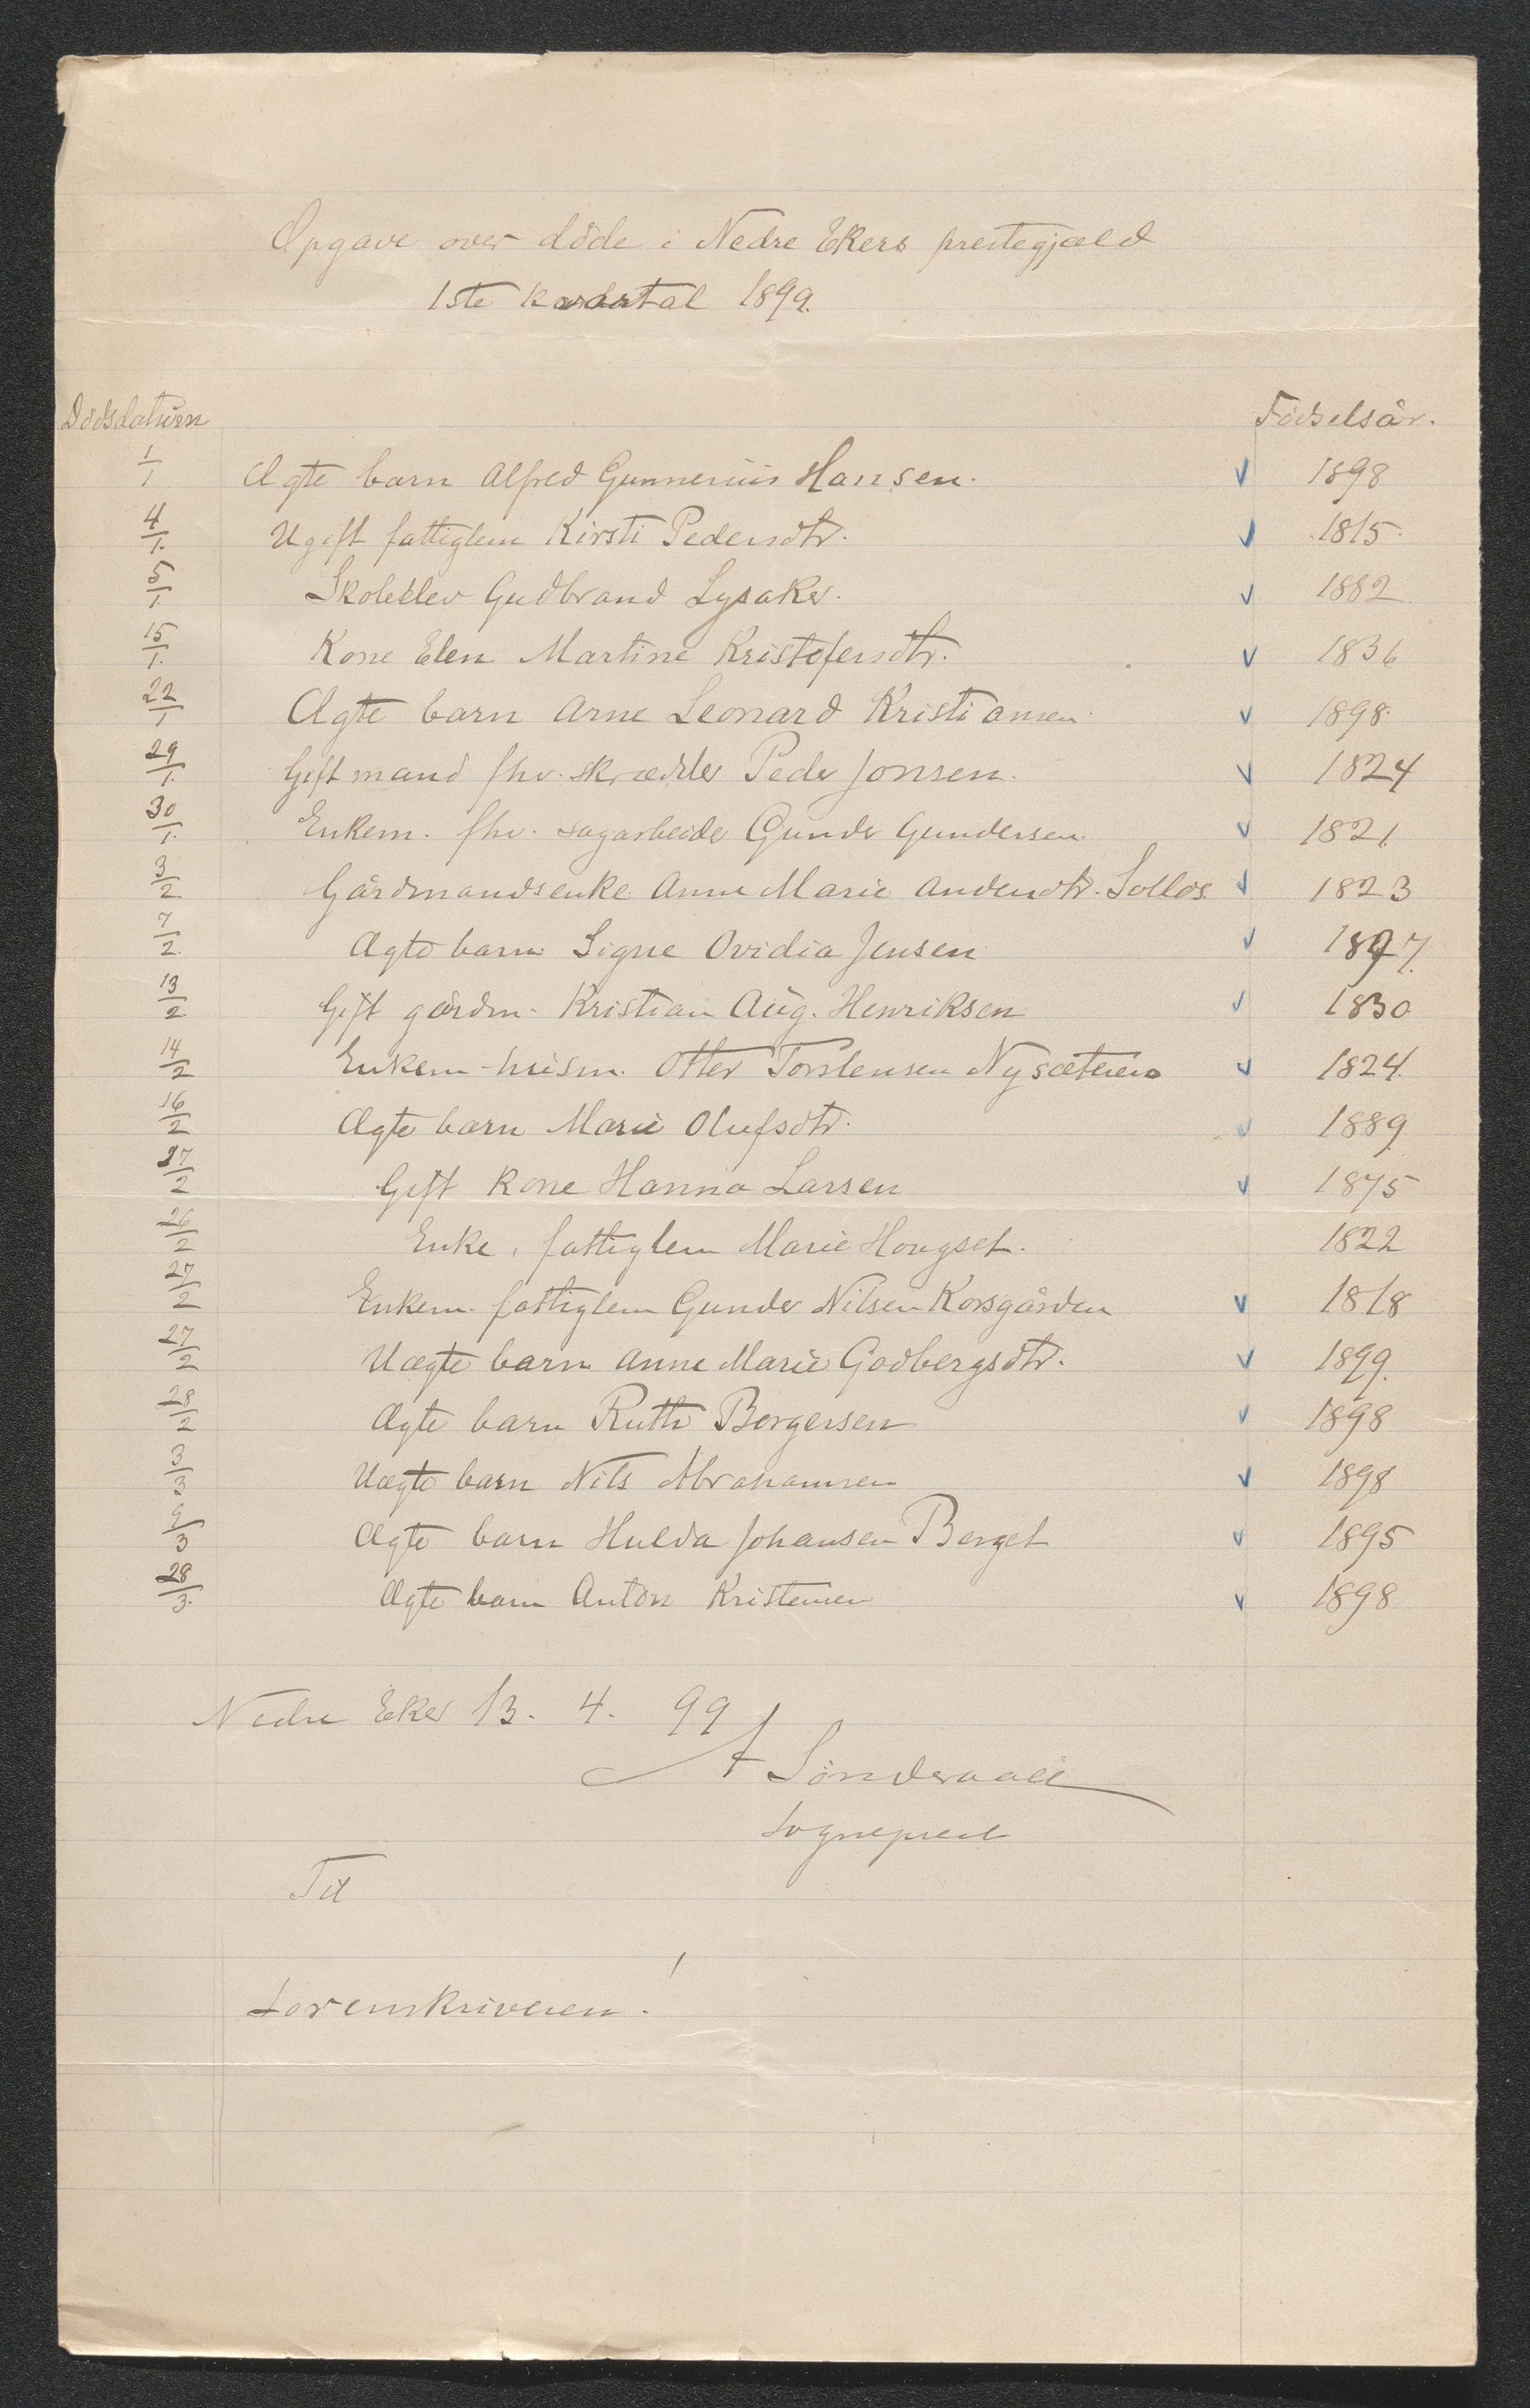 Opgave over döde i Nedre Ekers prestegjæld
1ste kvartal 1899.
Dödsdatum Födselsår.
1/1 Ægte barn Alfred Gunnerius Hansen. v 1898
4/1. Ugift fattiglem Kirsti Pedersdtr. v 1815.
5/1. Skoleelev Gudbrand Lysaker. v 1882
15/1. Kone Elen Martine Kristofersdtr. v 1836
22/1 Ægte barn Arne Leonard Kristiansen v 1898.
29/1. Gift mand fhv. skrædder Peder Jonsen. v 1824
30/1. Enkem. fhv. sagarbeider Gunder Gundersen v 1821.
3/2 Gårdmandsenke Anne Marie Andersdtr. Solløs. v 1823
7/2. Ægte barn Signe Ovidia Jensen v 1897.
13/2 Gift gårdm. Kristian Aug. Henriksen v 1830
14/2 Enkem. husm. Otter Torstensen Nysæteren v 1824.
16/2 Ægte barn Marie Olufsdtr. v 1889.
27/2 Gift kone Hanna Larsen v 1875
26/2 Enke, fattiglem Marie Hougset. 1822
27/2 Enkem. fattiglem Gunder Nilsen Korsgården v 1818
27/2 Uægte barn Anne Marie Godbergsdtr. v 1899.
28/2 Ægte barn Ruth Borgersen v 1898
3/3 Uægte barn Nils Abrahamsen v 1898
9/3 Ægte barn Hulda Johansen Berget v 1895
28/3. Ægte barn Anton Kristensen v 1898
Nedre Eker 13. 4. 99
A Sönderaal
sogneprest
Til
Sorenskriveren.